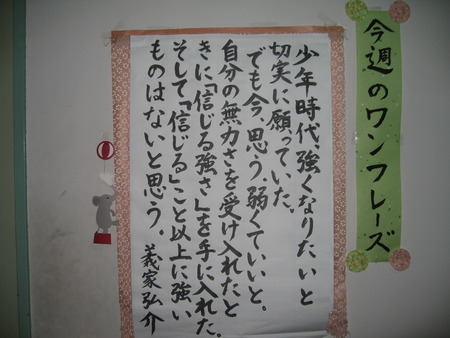 今週のワンフレーズ
少年時代、強くなりたいと
切実に願っていた。
でも今、思う。弱くていいと。
自分の無力さを受け入れたと
きに「信じる強さ」を手に入れた。
そして「信じる」こと以上に強い
ものはないと思う。
義家弘介